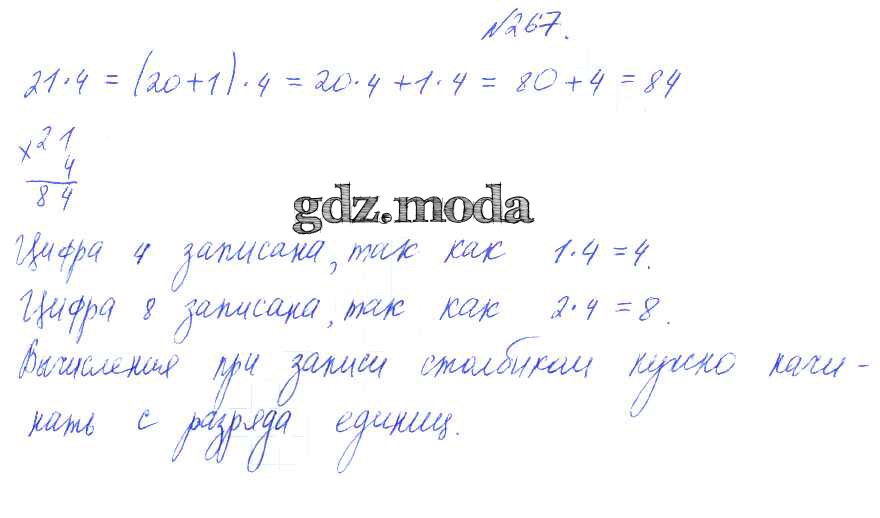 №267.
21·4 = (20+1)·4 = 20·4+1·4 = 80+4 = 84
×21
4
84
gdz.moda
Цифра 4 записана, так как 1·4=4.
Цифра 8 записана, так как 2·4=8.
Вычисления при записи столбиком нужно начи-
нать с разряда единиц.